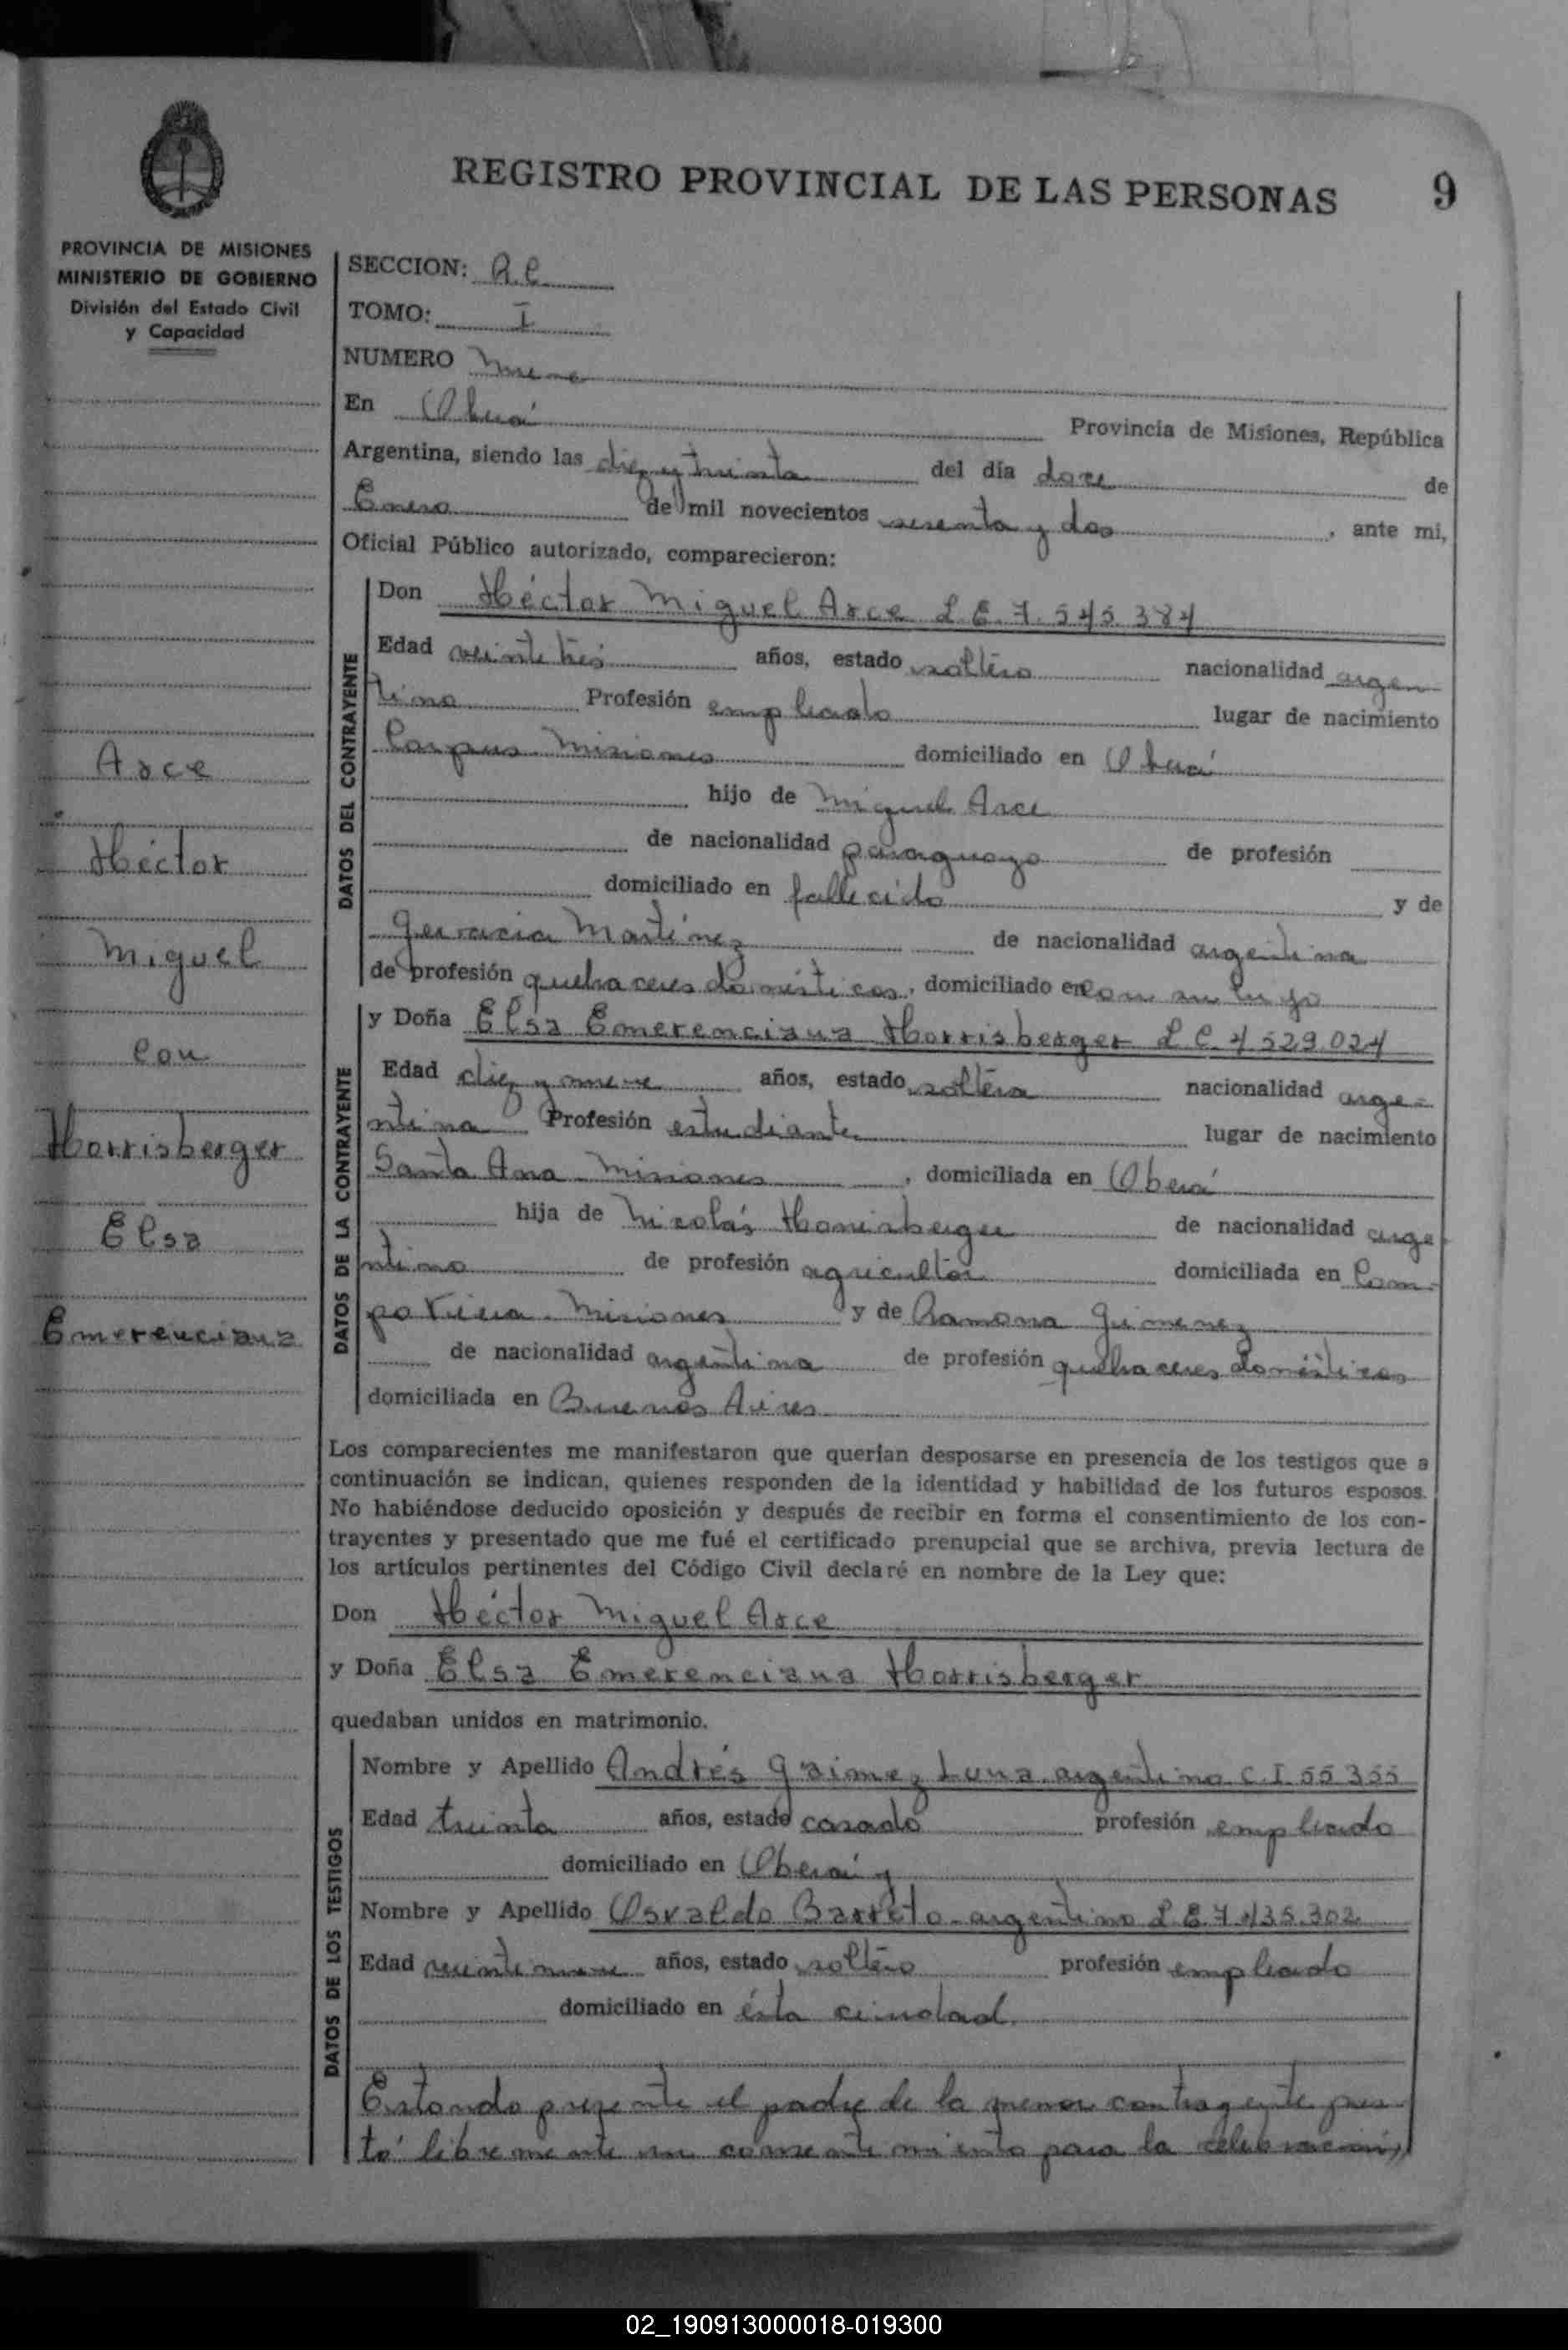 REGISTRO PROVINCIAL DE LAS PERSONAS 9
PROVINCIA DE MISIONES
MINISTERIO DE GOBIERNO
División del Estado Civil
y Capacidad
Arce
Héctor
Miguel
con
Horrisberger
Elsa
Emerenciana
SECCION: A.C
TOMO: I
NUMERO Nueve
En Oberá Provincia de Misiones, República
Argentina, siendo las diez y treinta del día doce de
Enero de mil novecientos sesenta y dos, ante mi,
Oficial Público autorizado, comparecieron:
DATOS DEL CONTRAYENTE
Don Héctor Miguel Arce L.E. 7.545.384
Edad veintitrés años, estado soltero nacionalidad argen
tino Profesión empleado lugar de nacimiento
Corpus Misiones domiciliado en Oberá
hijo de Miguel Arce
de nacionalidad paraguayo de profesión
domiciliado en fallecido y de
Gervacia Martínez de nacionalidad argentina
de profesión quehaceres domésticos, domiciliado en con su hijo
DATOS DE LA CONTRAYENTE
y Doña Elsa Emerenciana Horrisberger L.C. 4.529.024
Edad diez y nueve años, estado soltera nacionalidad arge-
ntina Profesión estudiante lugar de nacimiento
Santa Ana Misiones, domiciliada en Oberá
hija de Nicolás Horrisberger de nacionalidad arge
ntino de profesión agricultor domiciliada en Cam-
po Viera Misiones y de Ramona Gimenez
de nacionalidad argentina de profesión quehaceres domésticos
domiciliada en Buenos Aires
Los comparecientes me manifestaron que querían desposarse en presencia de los testigos que a
continuación se indican, quienes responden de la identidad y habilidad de los futuros esposos.
No habiéndose deducido oposición y después de recibir en forma el consentimiento de los con-
trayentes y presentado que me fué el certificado prenupcial que se archiva, previa lectura de
los artículos pertinentes del Código Civil declaré en nombre de la Ley que:
Don Héctor Miguel Arce
y Doña Elsa Emerenciana Horrisberger
quedaban unidos en matrimonio.
DATOS DE LOS TESTIGOS
Nombre y Apellido Andrés Gaimez Luna argentino C.I. 55355
Edad treinta años, estado casado profesión empleado
domiciliado en Oberá y
Nombre y Apellido Osvaldo Barreto argentino L.E. 7.435.302
Edad veintinueve años, estado soltero profesión empleado
domiciliado en ésta ciudad.
Estando presente el padre de la menor contrayente pres-
tó libremente su consentimiento para la celebración
02_190913000018-019300